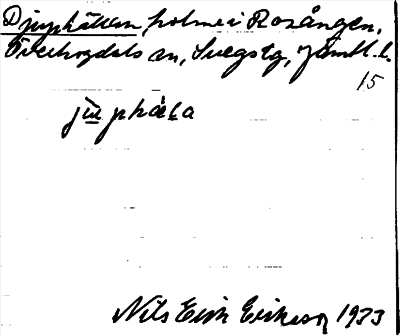 Djuphällan, holme i Rosången,
Överhogdals sn, Svegs tg, Jämtl. l.
15
ju̲phäḷa
Nils Eirik Erikson 1933